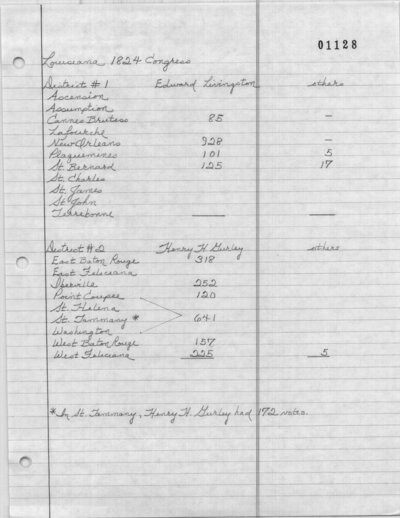 01128
Louisiana 1824 Congress
District #1 Edward Livingston others
Ascension
Assumption
Cannes Brulees 85 —
Lafourche
New Orleans 928 —
Plaquemines 101 5
St. Bernard 125 17
St. Charles
St. James
St. John
Terrebonne
District #2 Henry H. Gurley others
East Baton Rouge 318
East Feliciana
Iberville 252
Point Coupee 120
St. Helena
St. Tammany * 641
Washington
West Baton Rouge 157
West Feliciana 225 5
*In St. Tammany, Henry H. Gurley had 172 votes.